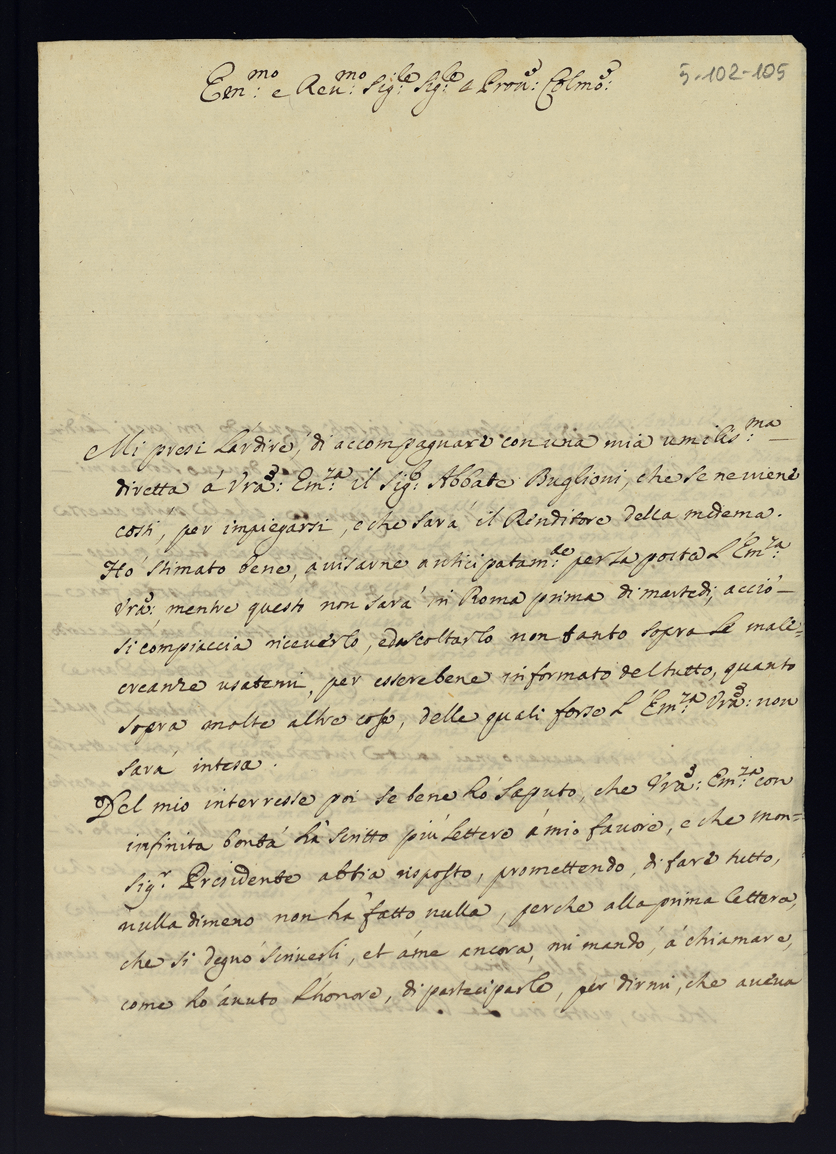 5-102-105
Em:mo e Reu:mo Sig:re Sig:re e Pron:e Colmo:
Mi presi L'ardire, di accompagnare con una mia umilis:ma
diretta á Vra: Em:za il Sig:r Abbate Buglioni, che se ne viene
costi, per impiegarsi, e che sará il Renditore della medema.
Hó stimato bene, auisarne anticipatam:te per La posta L'Em:za
Vra:, mentre questi non sará in Roma prima di martedi, acció
si compiaccia riceuerlo, ed ascoltarlo non tanto sopra Le male-
creanze usatemi, per essere bene informato del tutto, quanto
sopra molte altre cose, delle quali forse L'Em:za Vra: non
sará intesa.
Del mio interresse poi se bene hó saputo, che Vra: Em:za con
infinita bontá há scritto piú Lettere á mio fauore, e che mon-
sig:r Presidente abbia risposto, promettendo, di fare tutto,
nulla dimeno non há fatto nulla, perche alla prima Lettera,
che si degnó scriuerli, et á me ancora, mi mandó, á chiamare,
come hó áuuto L'honore, di parteciparle, per dirmi, che aueua